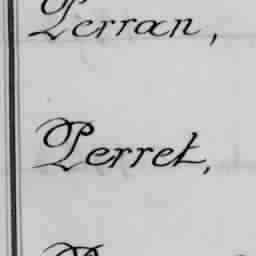 Perran,
Perret,